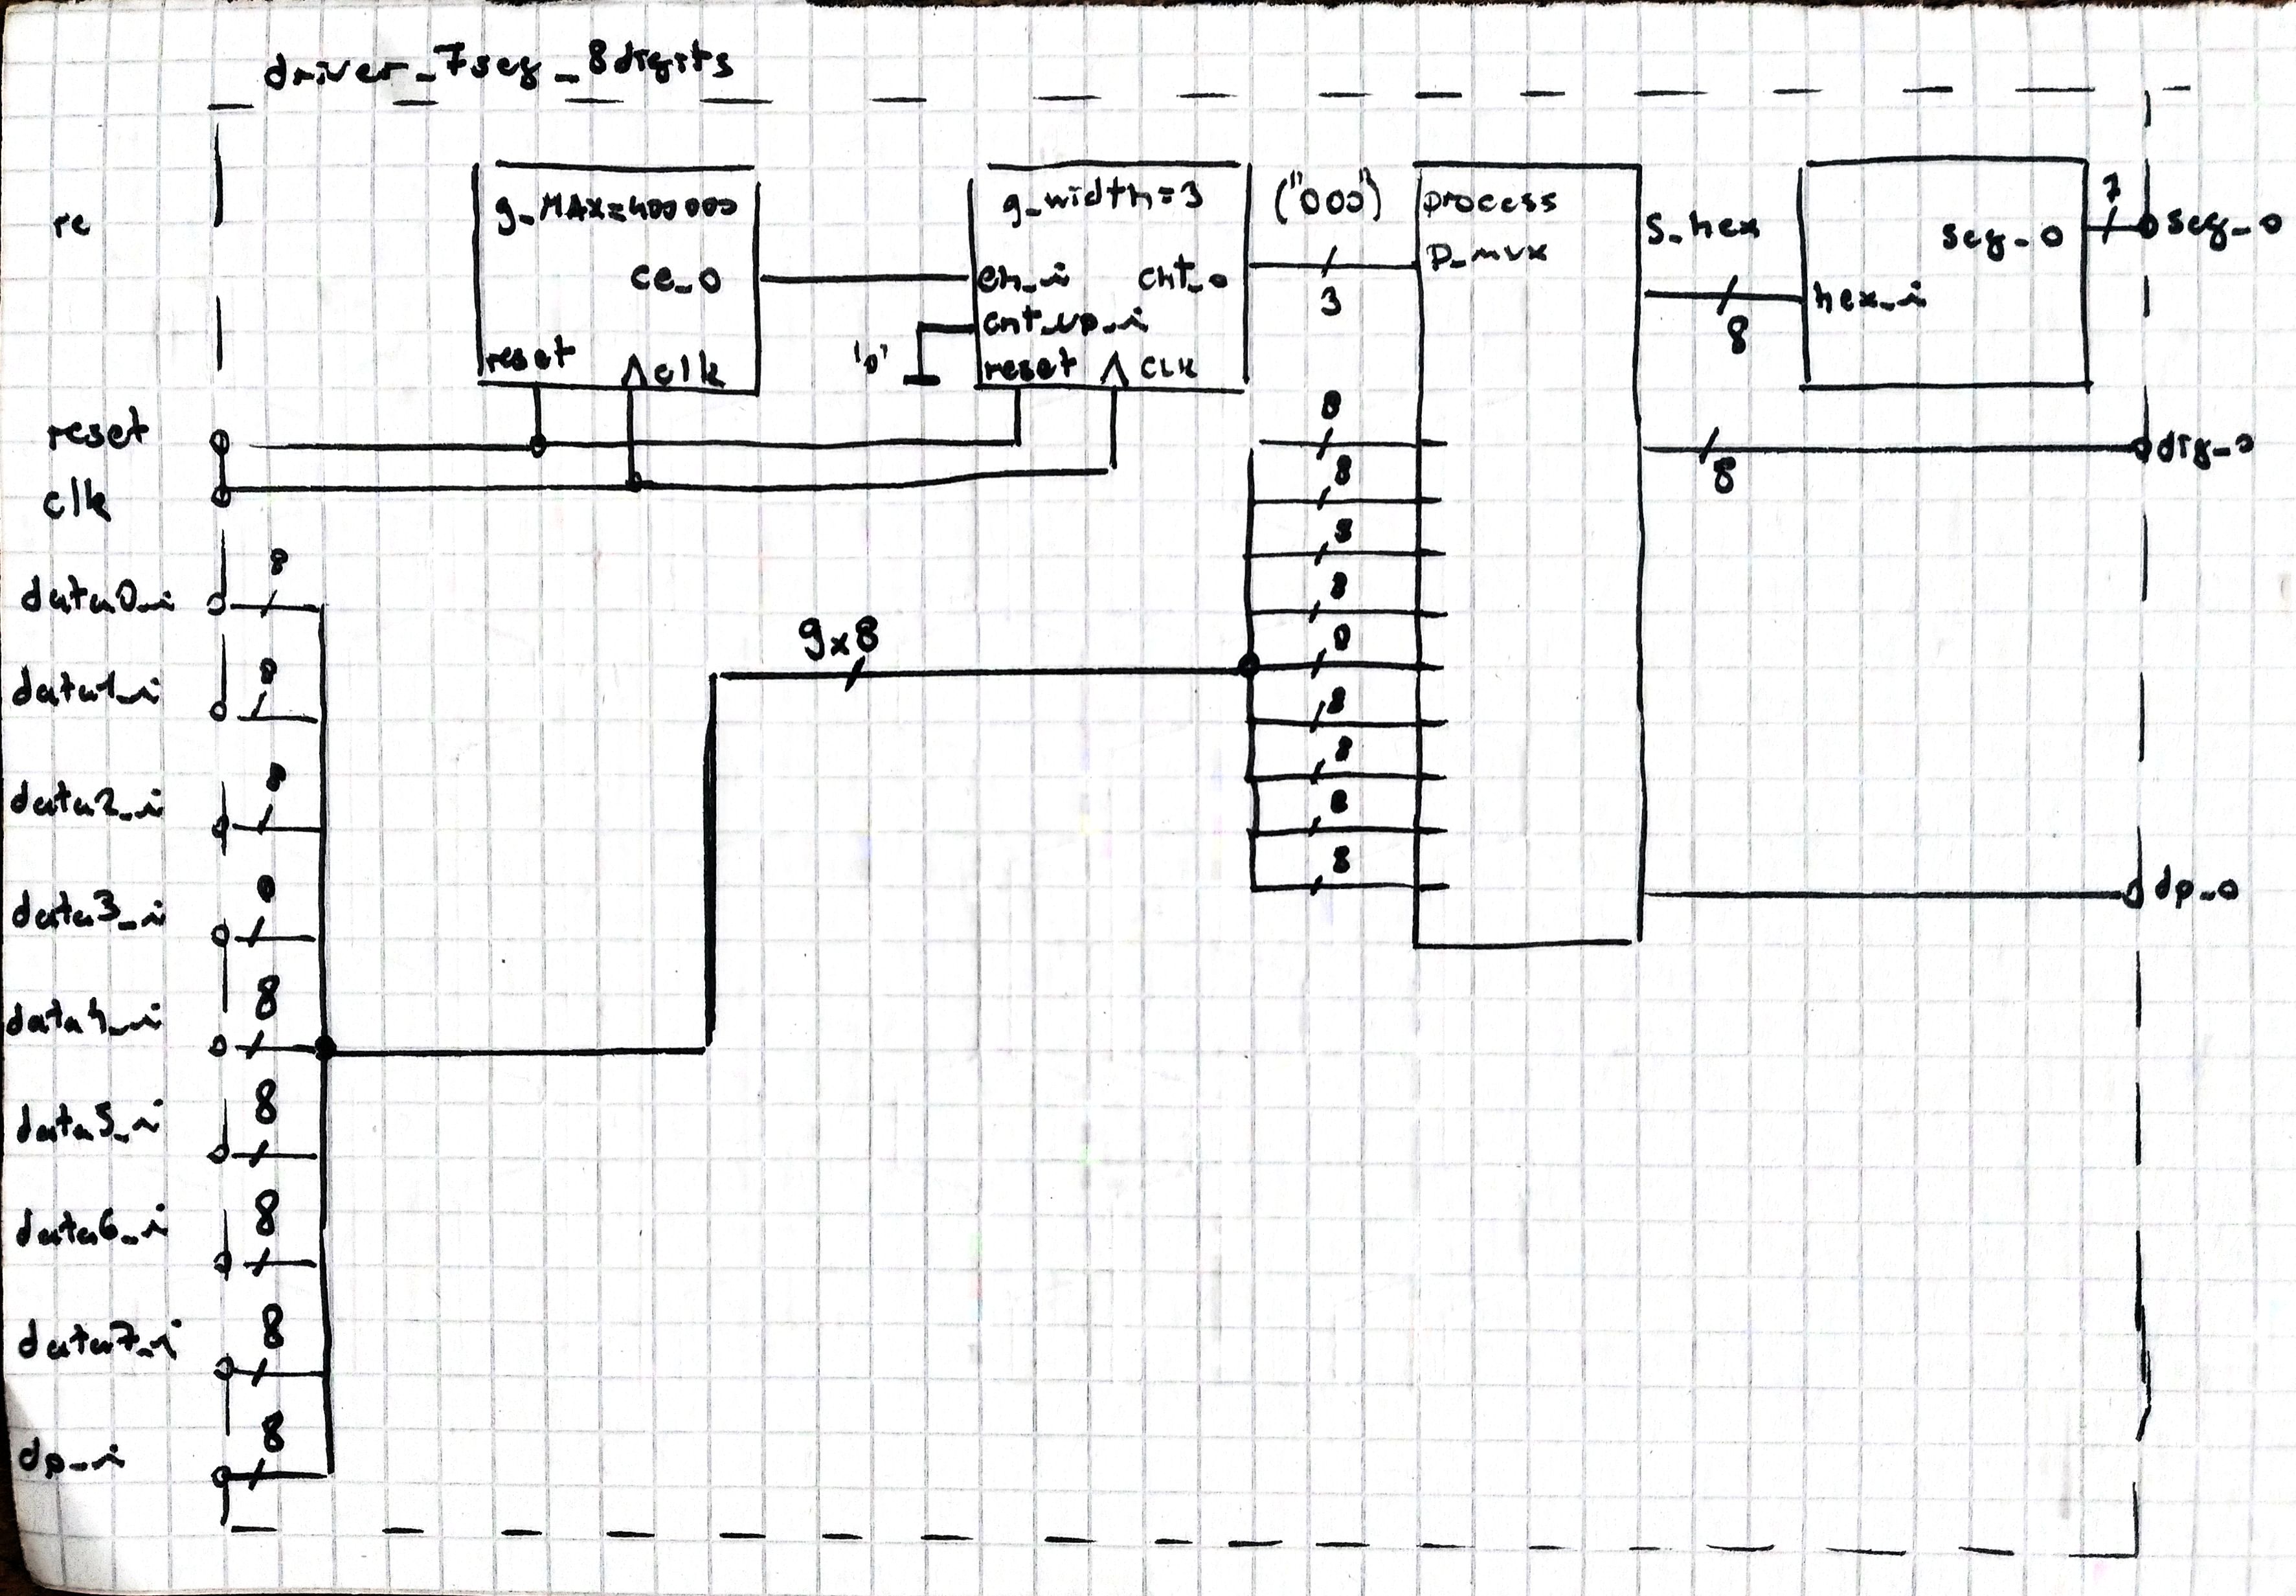 driver_7seg_8digits
re
g_MAX=400000
ce_o
reset
clk
g_width=3
en_i
cnt_o
cnt_up_i
'0'
reset
CLK
("000")
3
process
p_mux
s_hex
8
seg_o
hex_i
7
seg_o
reset
clk
8
dig_o
data0_i
8
data1_i
8
data2_i
8
data3_i
8
data4_i
8
data5_i
8
data6_i
8
data7_i
8
dp_i
8
9x8
8
8
8
8
8
8
8
8
8
dp_o